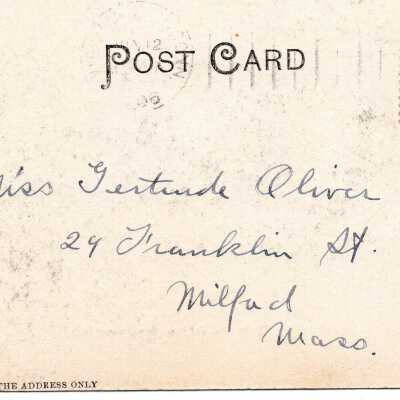 POST CARD
Miss Gertrude Oliver
29 Franklin St.
Milford
Mass.
THE ADDRESS ONLY